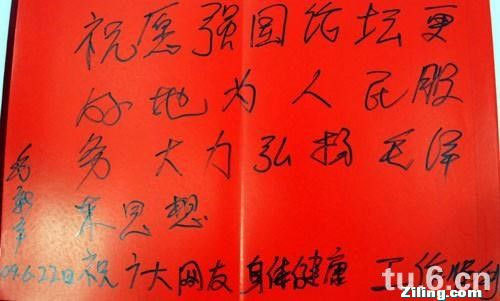 祝愿强国论坛更
好地为人民服
务 大力弘扬毛泽
东思想
祝广大网友 身体健康 工作顺利
09.6.22日
tu6.cn
Ziling.com